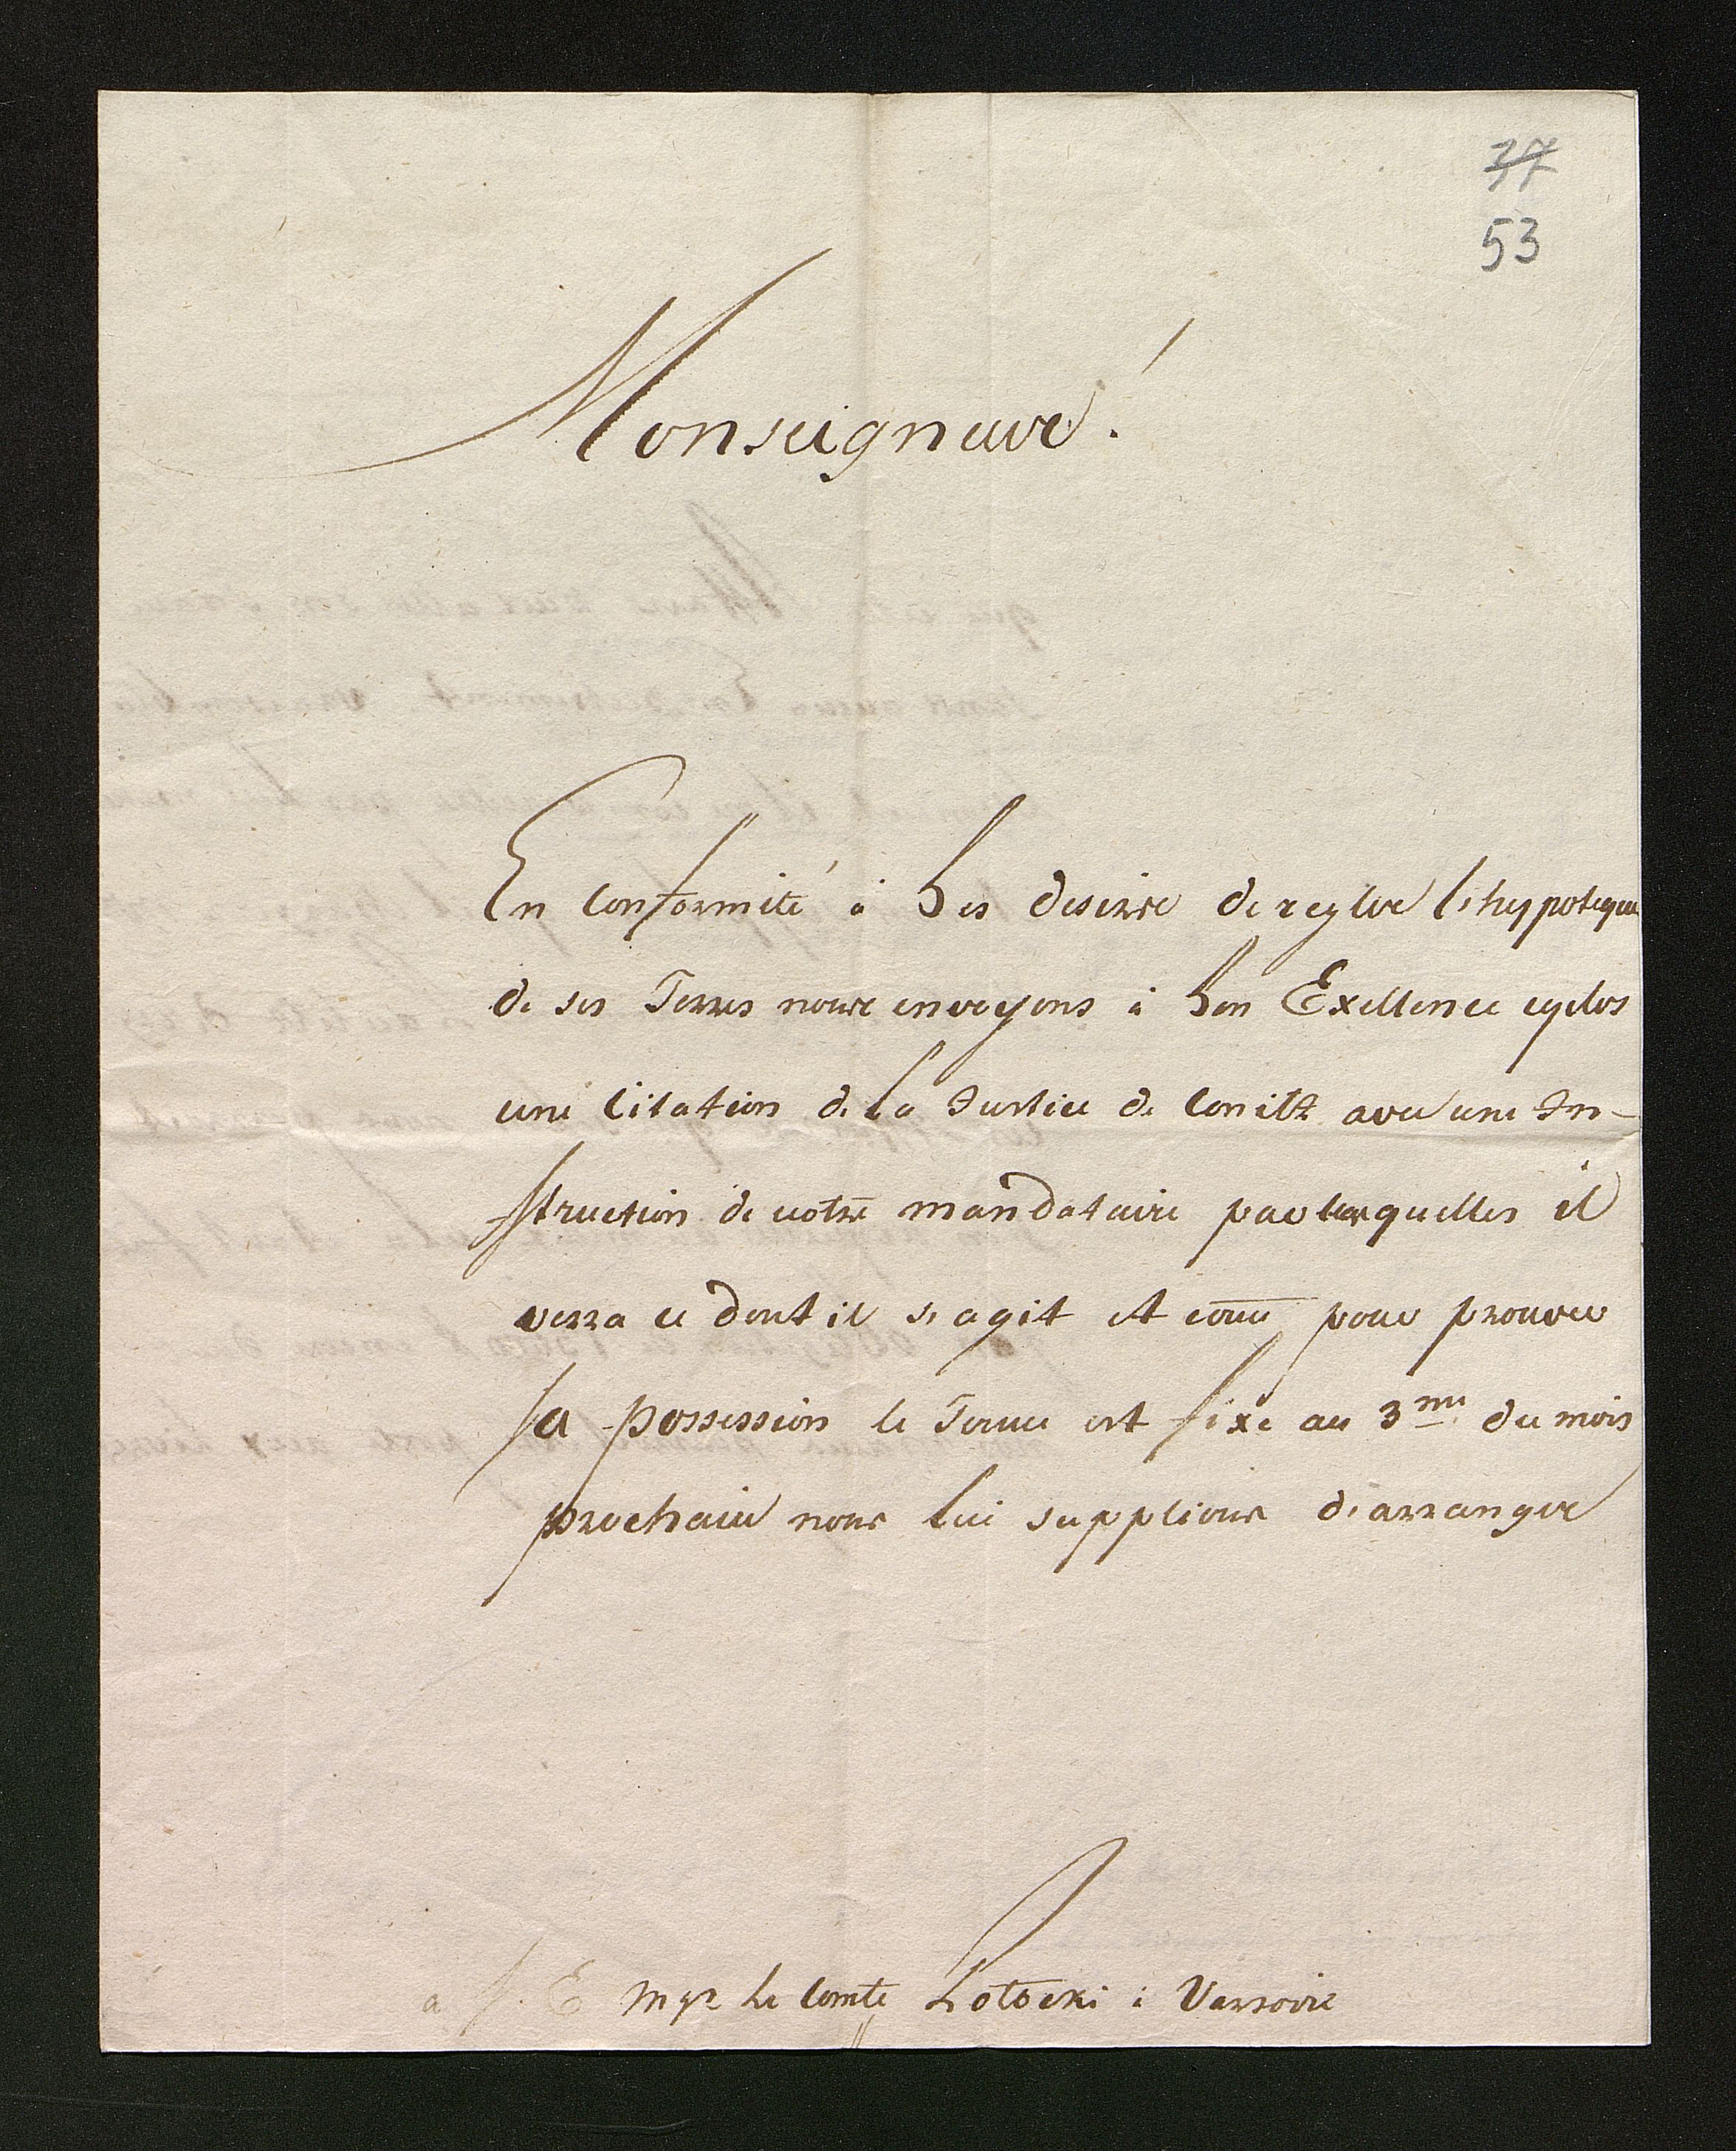 37
53
Monseigneur!
En Conformité à Ses desirs de regler l'hypoteque
de ses Terres nous envoyons à Son Exellence cyclos
une Citation de La Justice de Conitz avec une In-
struction de votre mandataire par lesquelles il
verra ce dont il s'agit et com̄e pour prouver
Sa possession le Terme est fixe au 3me du mois
prochain nous Lui supplions d'arranger
a S. E Mgr Le Comte Potocki à Varsovie